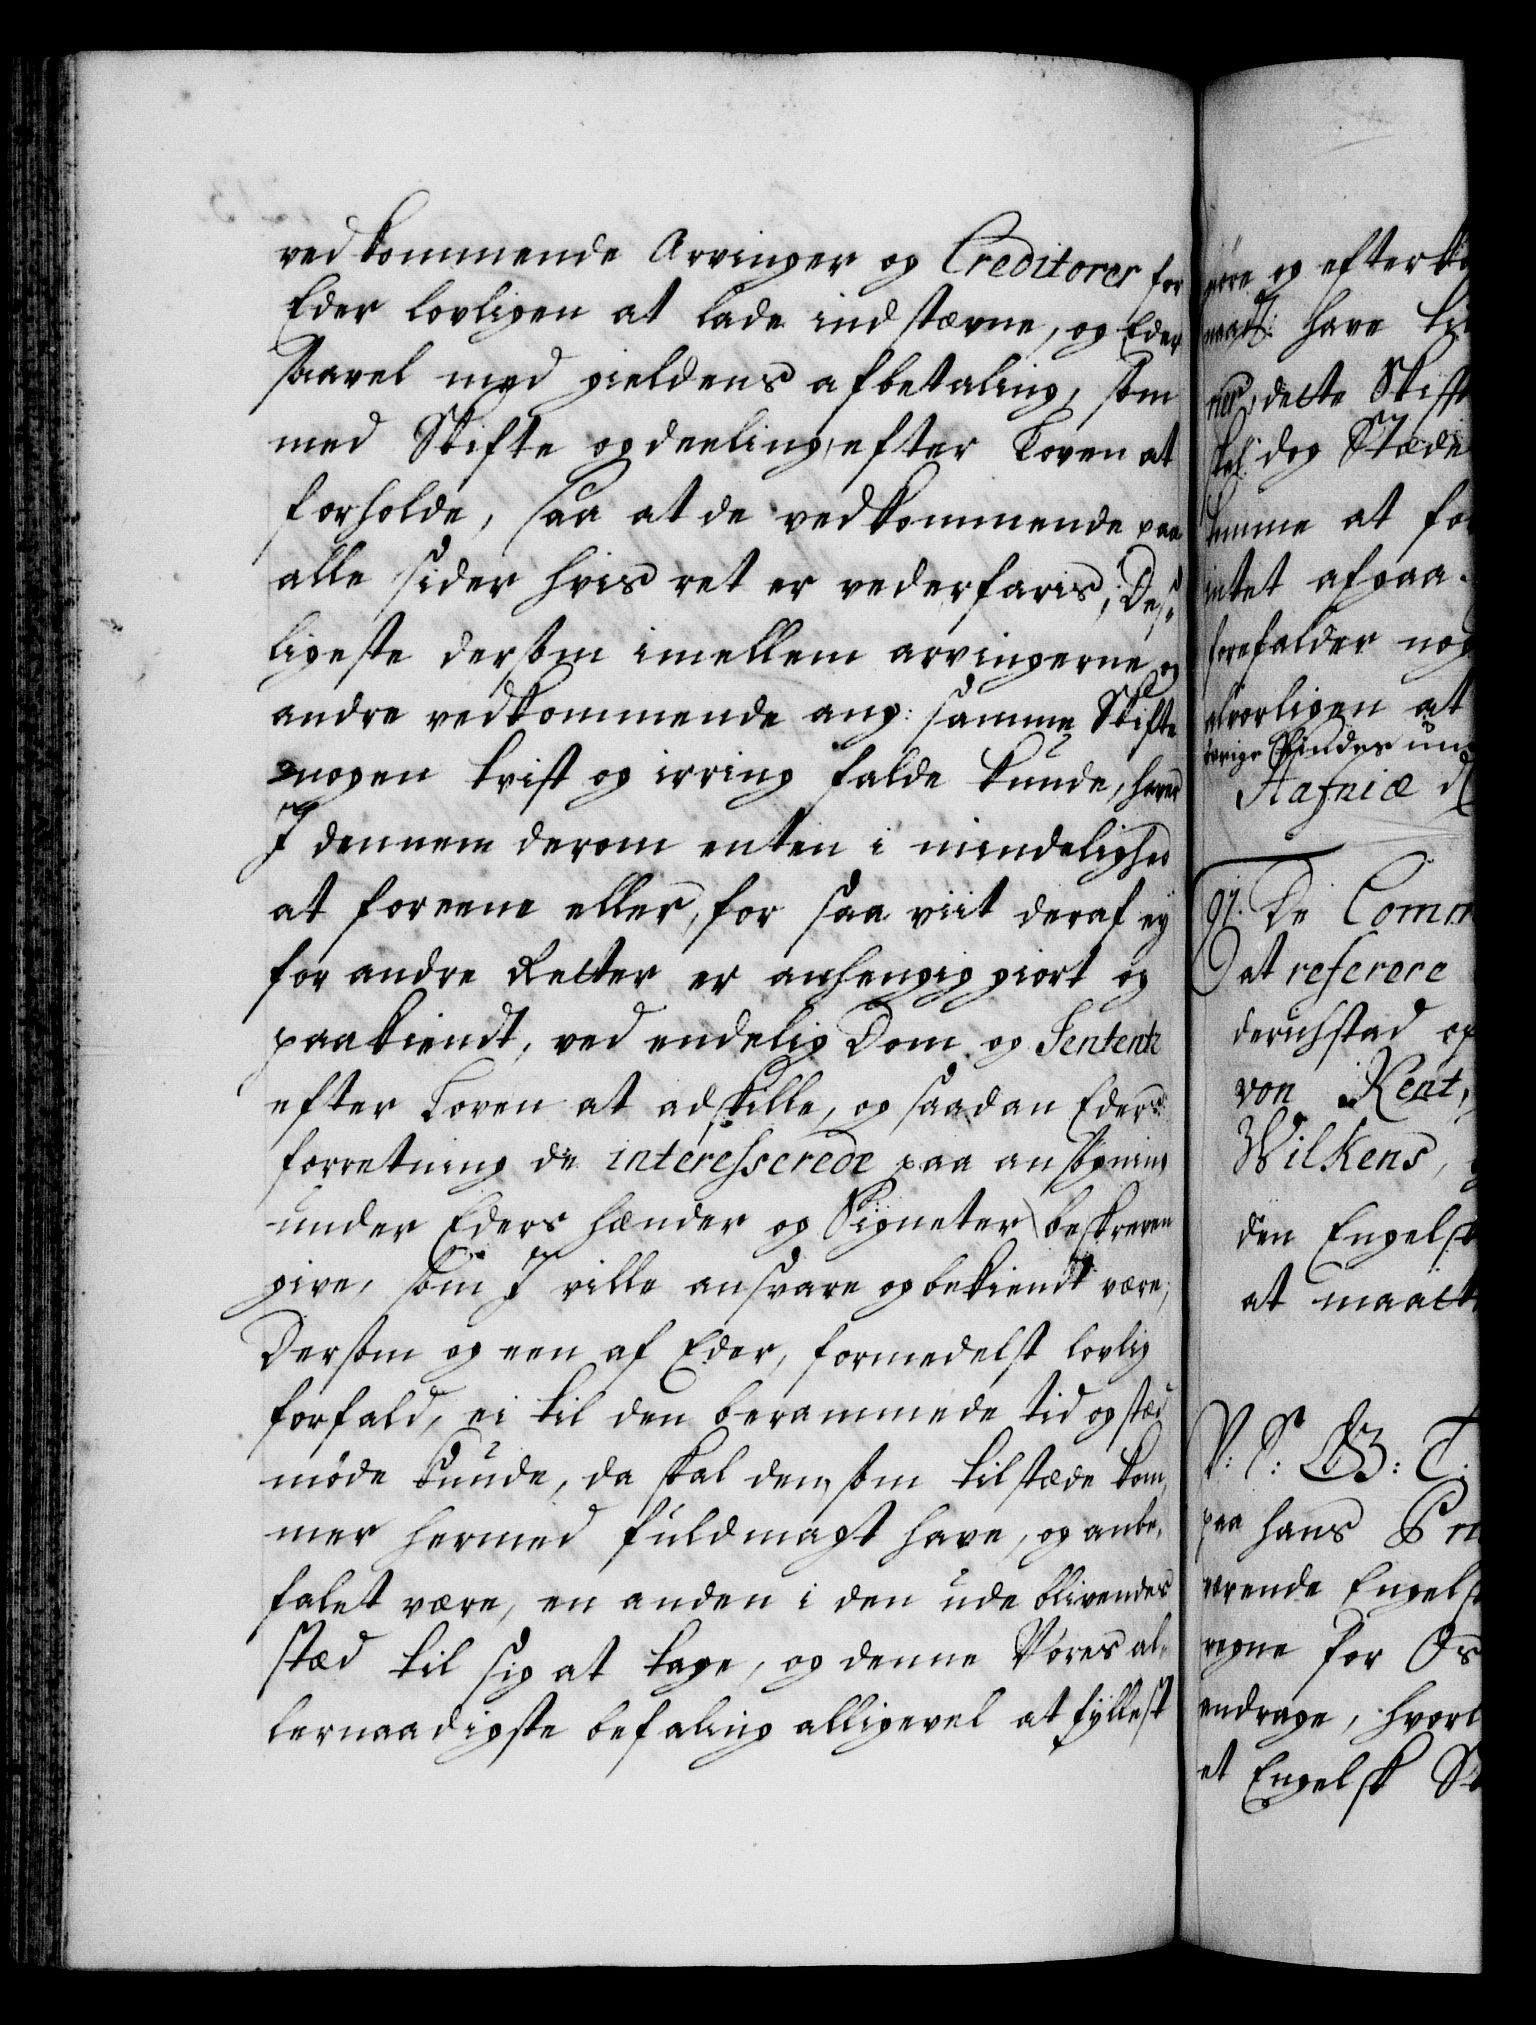 vedkommende Arvinger og Creditorer for
Eder lovligen at lade indstævne, og Eder
saavel med gieldens afbetaling, som
med Skifte og deeling, efter Loven at
forholde, saa at de vedkommende paa
alle sider hvis ret er vederfaris; Des-
ligeste dersom imellem arvingerne og
andre vedkommende ang: samme Skifte
nogen tvist og irring falde kunde, have
I dennem derom enten i mindelighed
at foreene eller, for saa viit deraf ej
for andre Retter er anhengig giort og
paakiendt, ved endelig Dom og Sententz
efter Loven at adskille, og saadan Eders
forretning de interesserede paa ansøgning
under Eders hænder og Signeter beskreven
give, som I ville ansvare og bekiendt være;
Dersom og een af Eder, formedelst lovlig
forfald, ei til den berammede tid og stæd
møde kunde, da skal den, som tilstæde kom,
mer hermed fuldmagt have, og anbe,
falet være, en anden i den udeblivendes
stæd til sig at tage, og denne Vores al-
lernaadigste befaling alligevel at fyllest
giøre og efterko
magt have til
rer, dette Skift
skal dog Stæde
komme at for
intet afgaa.
forefalder nog
alvorligen at
Hafniæ d
91. De Comm
at referere
deruhstad og
von Kent,
Wilkens,
den Engelsk
at maatte
V: S: G: T:
paa hans Pri
værende Engelsk
regne for Os
andrage, hvorl
et Engelsk Sk